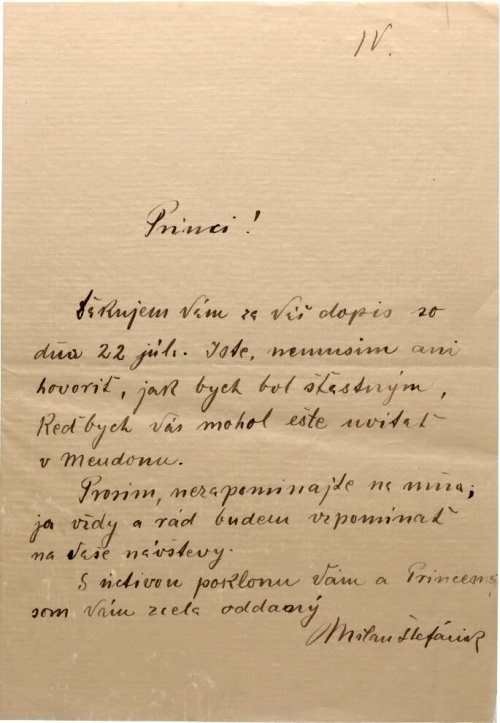 IV.
Princi!
Ďakujem Vám za Váš dopis zo
dňa 22 júl. Iste, nemusím ani
hovoriť, jak bych bol šťastným,
keď bych Vás mohol ešte uvítať
v Meudonu.
Prosím, nezapomínajte na mňa;
ja vždy a rád budem vzpomínať
na Vaše návštevy.
S úctivou poklonu Vám a Princezne
som Vám zcela oddaný
Milan Štefánik